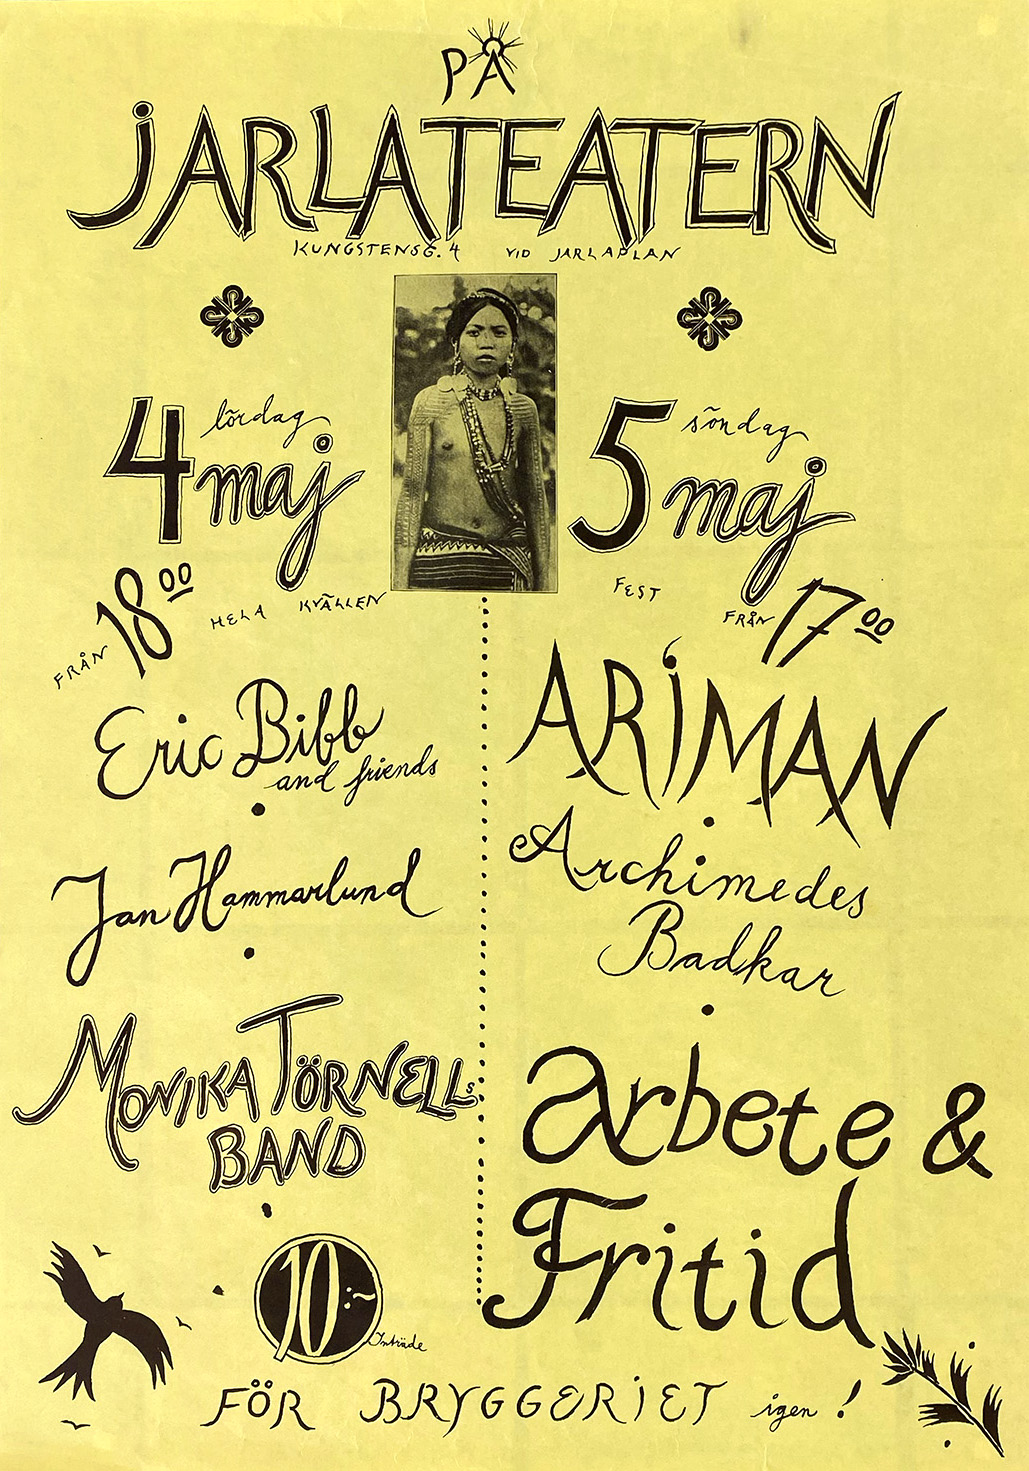 PÅ
JARLATEATERN
KUNGSTENSG. 4 VID JARLAPLAN
lördag
4 maj
FRÅN 18 00 HELA KVÄLLEN
Eric Bibb
and friends
Jan Hammarlund
MONIKA TÖRNELLs
BAND
10:-
Inträde
söndag
5 maj
FEST FRÅN 17 00
ARIMAN
Archimedes
Badkar
Arbete &
Fritid
FÖR BRYGGERIET igen!